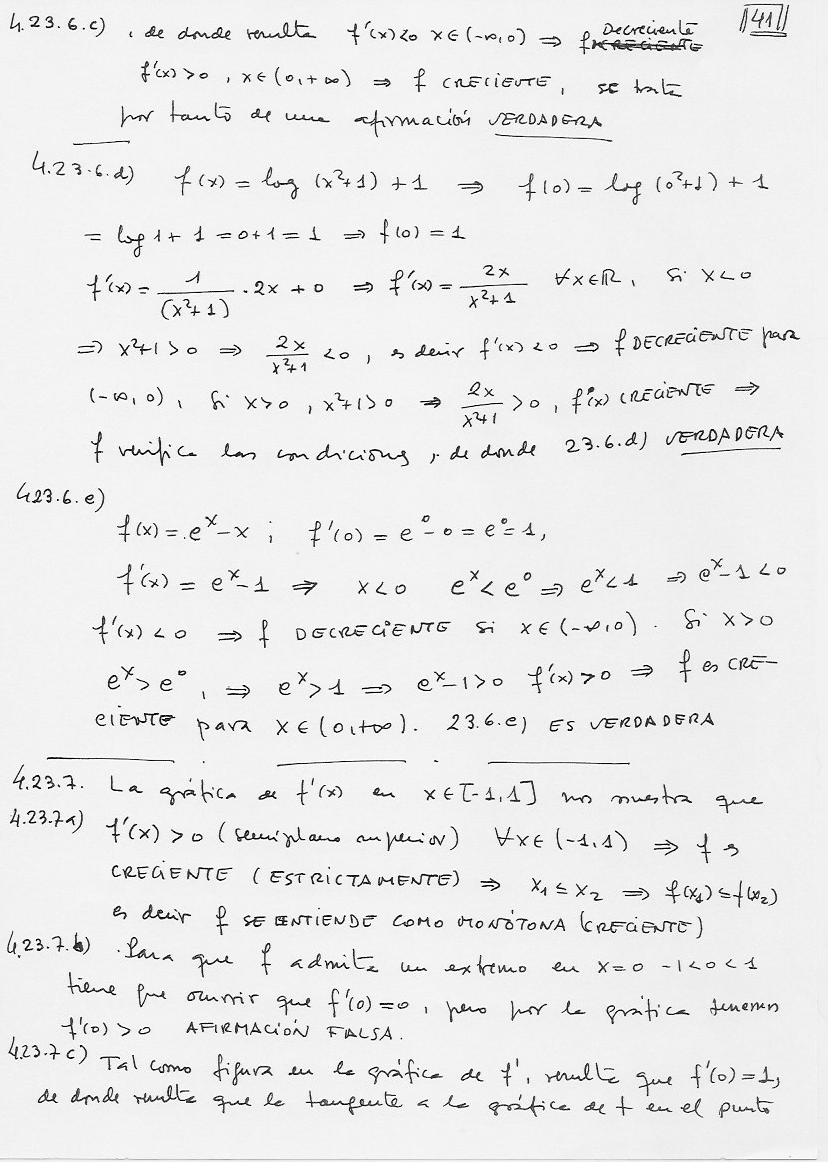 41
4.23.6.c) , de donde resulta f'(x)<0 x∈(-∞,0) ⇒ f Decreciente
f'(x)>0, x∈(0,+∞) ⇒ f CRECIENTE, se trata
por tanto de una afirmación VERDADERA
4.23.6.d) f(x) = log (x²+1) + 1 ⇒ f(0) = log (0²+1) + 1
= log 1 + 1 = 0+1 = 1 ⇒ f(0) = 1
f'(x) = 1/(x²+1) · 2x + 0 ⇒ f'(x) = 2x/x²+1 ∀x∈ℝ, Si x<0
⇒ x²+1>0 ⇒ 2x/x²+1 <0, es decir f'(x)<0 ⇒ f DECRECIENTE para
(-∞,0), Si x>0, x²+1>0 ⇒ 2x/x²+1 >0, f'(x) CRECIENTE ⇒
f verifica las condiciones, de donde 23.6.d) VERDADERA
4.23.6.e)
f(x) = e^x - x ; f'(0) = e^0 - 0 = e^0 = 1,
f'(x) = e^x - 1 ⇒ x<0 e^x < e^0 ⇒ e^x < 1 ⇒ e^x - 1 < 0
f'(x) < 0 ⇒ f DECRECIENTE si x∈(-∞,0). Si x>0
e^x > e^0, ⇒ e^x > 1 ⇒ e^x - 1 > 0 f'(x) > 0 ⇒ f es CRE-
CIENTE para x∈(0,+∞). 23.6.e) ES VERDADERA
4.23.7. La gráfica de f'(x) en x∈[-1,1] nos muestra que
4.23.7a) f'(x) > 0 (semiplano superior) ∀x∈(-1,1) ⇒ f es
CRECIENTE (ESTRICTAMENTE) ⇒ x₁ ≤ x₂ ⇒ f(x₁) ≤ f(x₂)
es decir f SE ENTIENDE COMO MONÓTONA (CRECIENTE)
4.23.7.b) . Para que f admita un extremo en x=0 -1<0<1
tiene que ocurrir que f'(0)=0, pero por la gráfica tenemos
f'(0) > 0 AFIRMACIÓN FALSA.
4.23.7 c) Tal como figura en la gráfica de f', resulta que f'(0)=1,
de donde resulta que la tangente a la gráfica de f en el punto